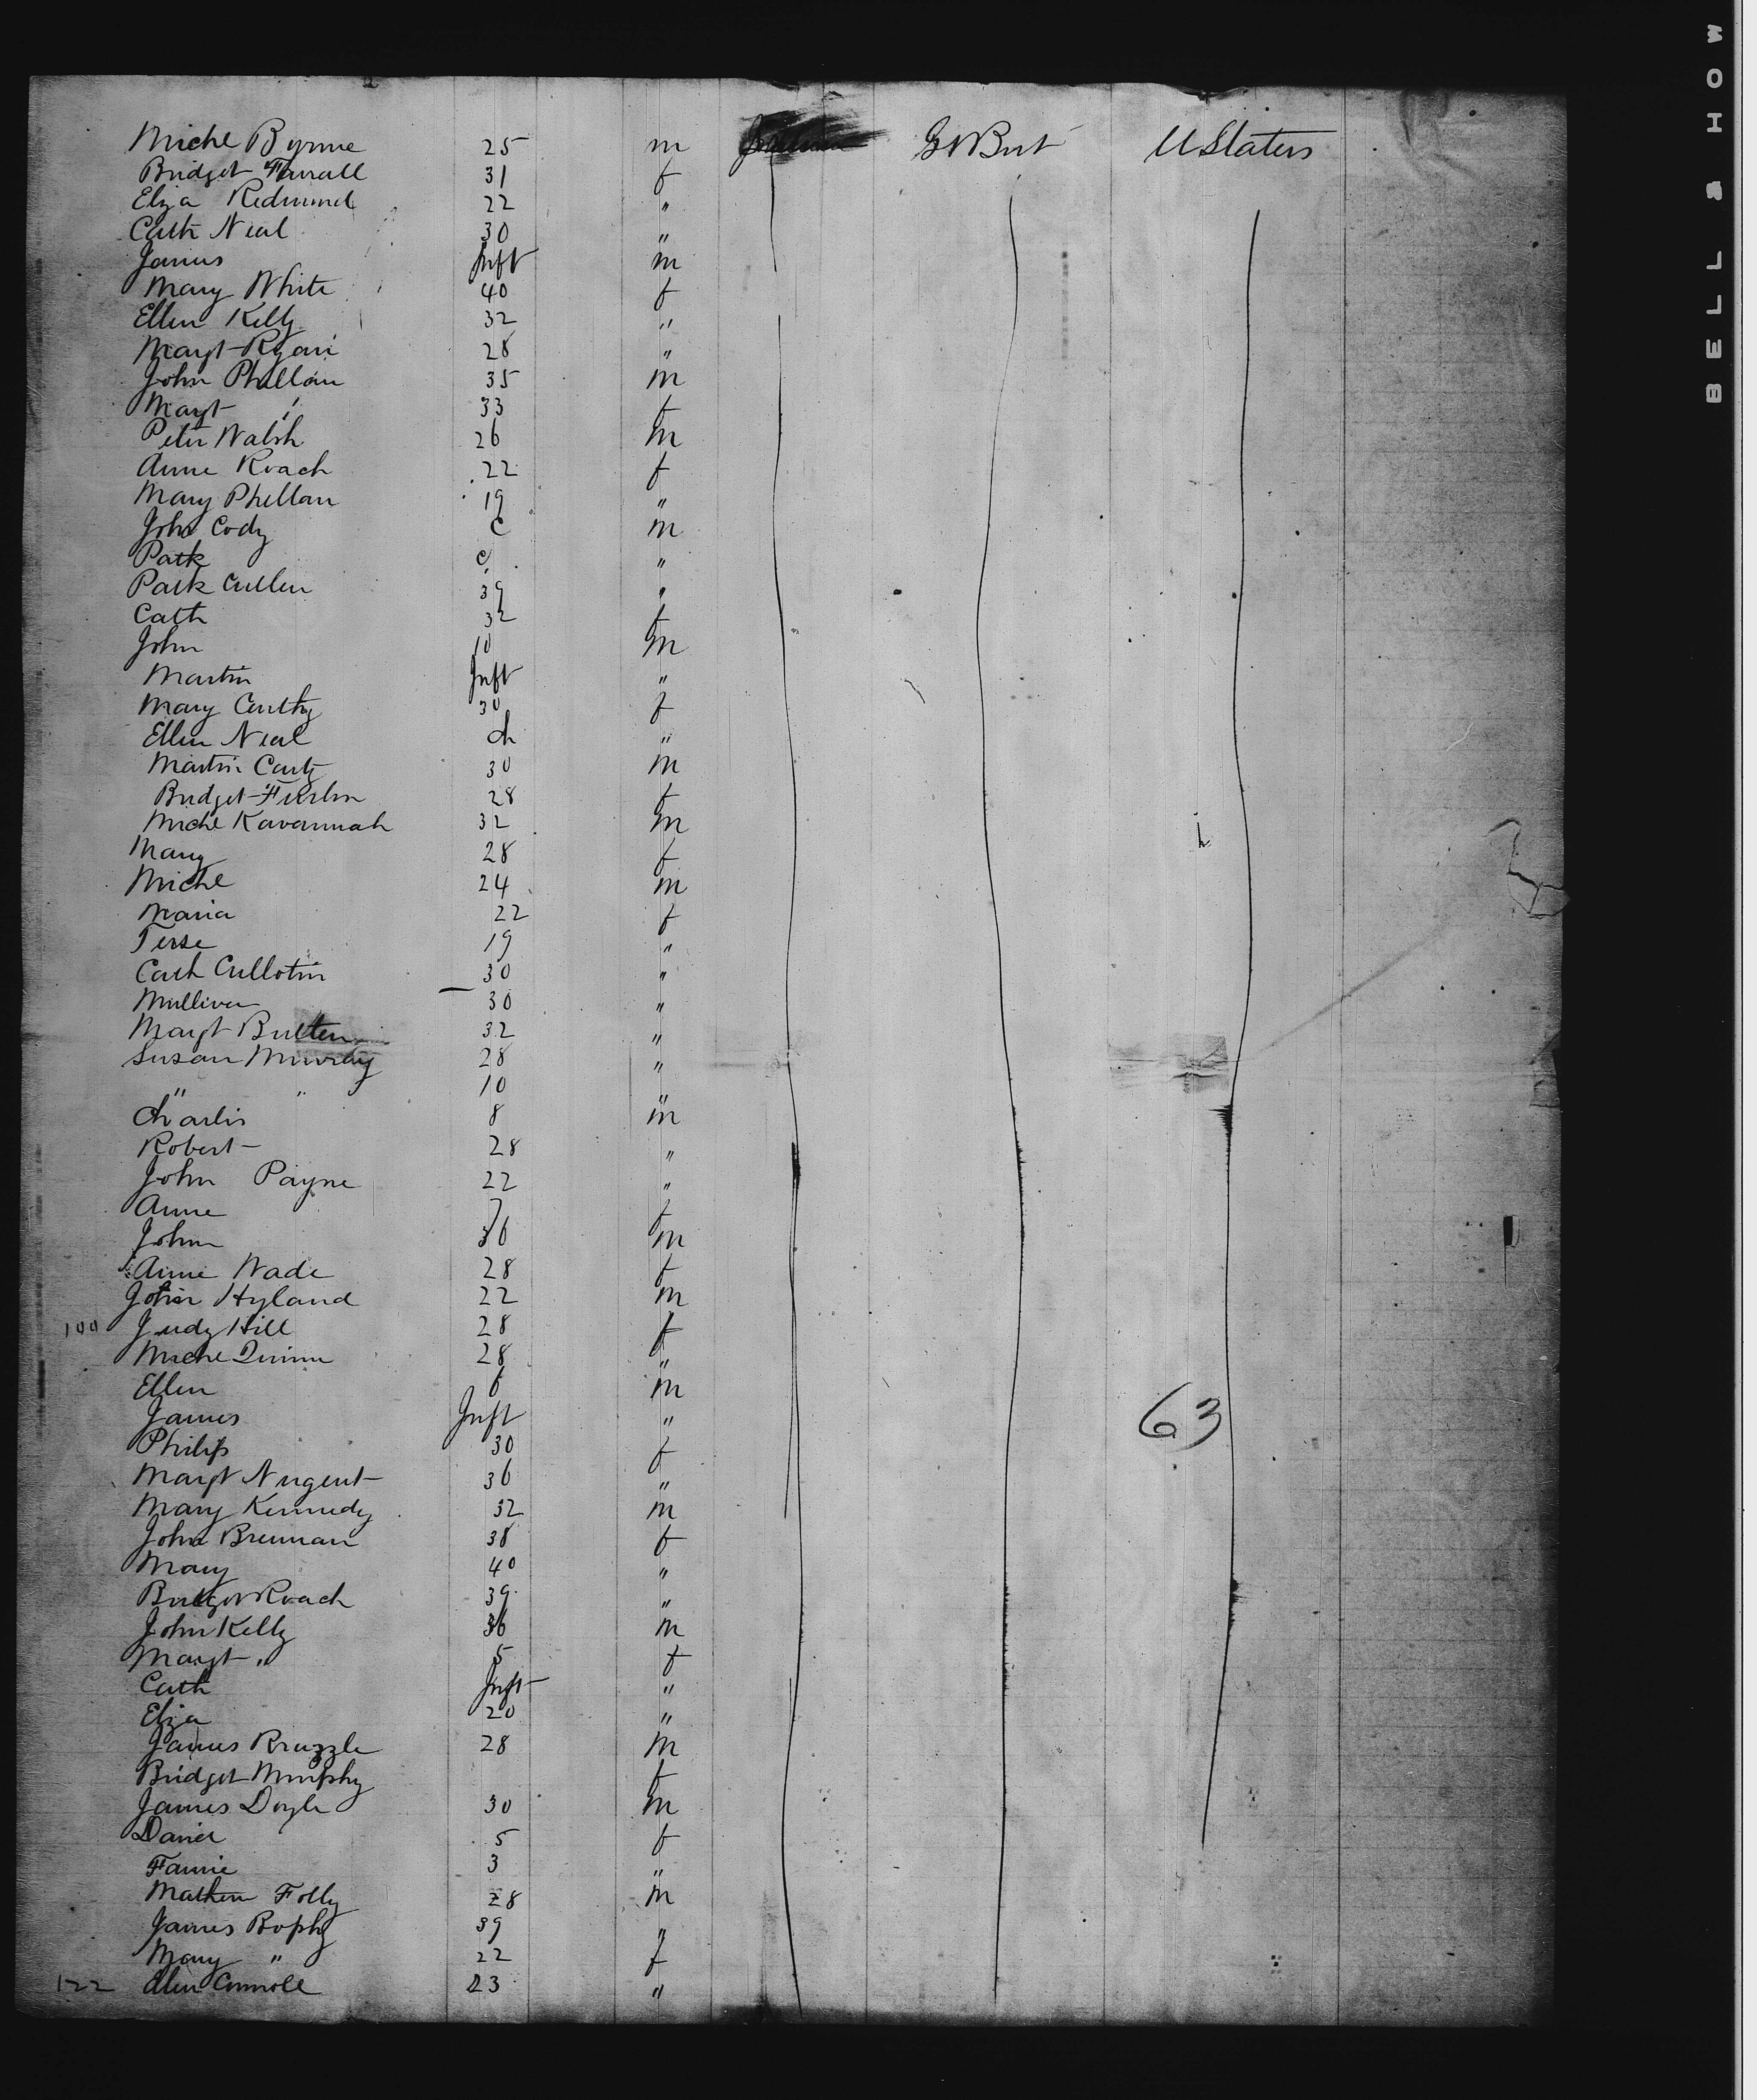 Michl Byrne 25 m Gt Brit U States
Bridget Farrall 31 f
Eliza Redmond 22 "
Cath Neal 30 "
James Inft m
Mary White 40 f
Ellen Kelly 32 "
Margt Ryan 28 "
John Phellan 35 m
Margt " 33 f
Peter Walsh 26 m
Anne Roach 22 f
Mary Phellan 19 "
John Cody C m
Patk C "
Patk Cullen 39 "
Cath 32 f
John 10 m
Martin Inft "
Mary Carthy 30 f
Ellen Neal ch "
Martin Carty 30 m
Bridget Furlon 28 f
Michl Kavannah 32 m
Mary 28 f
Michl 24 m
Maria 22 f
Terse 19 "
Cath Cullotin 30 "
30 "
Margt 32 "
Susan Murray 28 "
" " 10
Charlis 8 m
Robert 28 "
John Payne 22 "
Anne 7 f
John 36 m
Anne Wade 28 f
John Hyland 22 m
100 Judy Hill 28 f
Michl Quinn 28 "
Ellen 6 m
James Inft "
Philip 30 f
63
Margt Nugent 36 "
Mary Kennedy 32 m
John Brennan 38 f
Mary 40 "
Bridget Roach 39 "
John Kelly 36 m
Margt " 5 f
Cath Inft "
Eliza 20 "
James 28 m
Bridget Murphy f
James Doyle 30 m
Daniel 5 f
Fannie 3 "
Mathew Folly 28 m
James Bophy 39 "
Mary " 22 f
122 Ellen Connoll 23 "
BELL & HOW